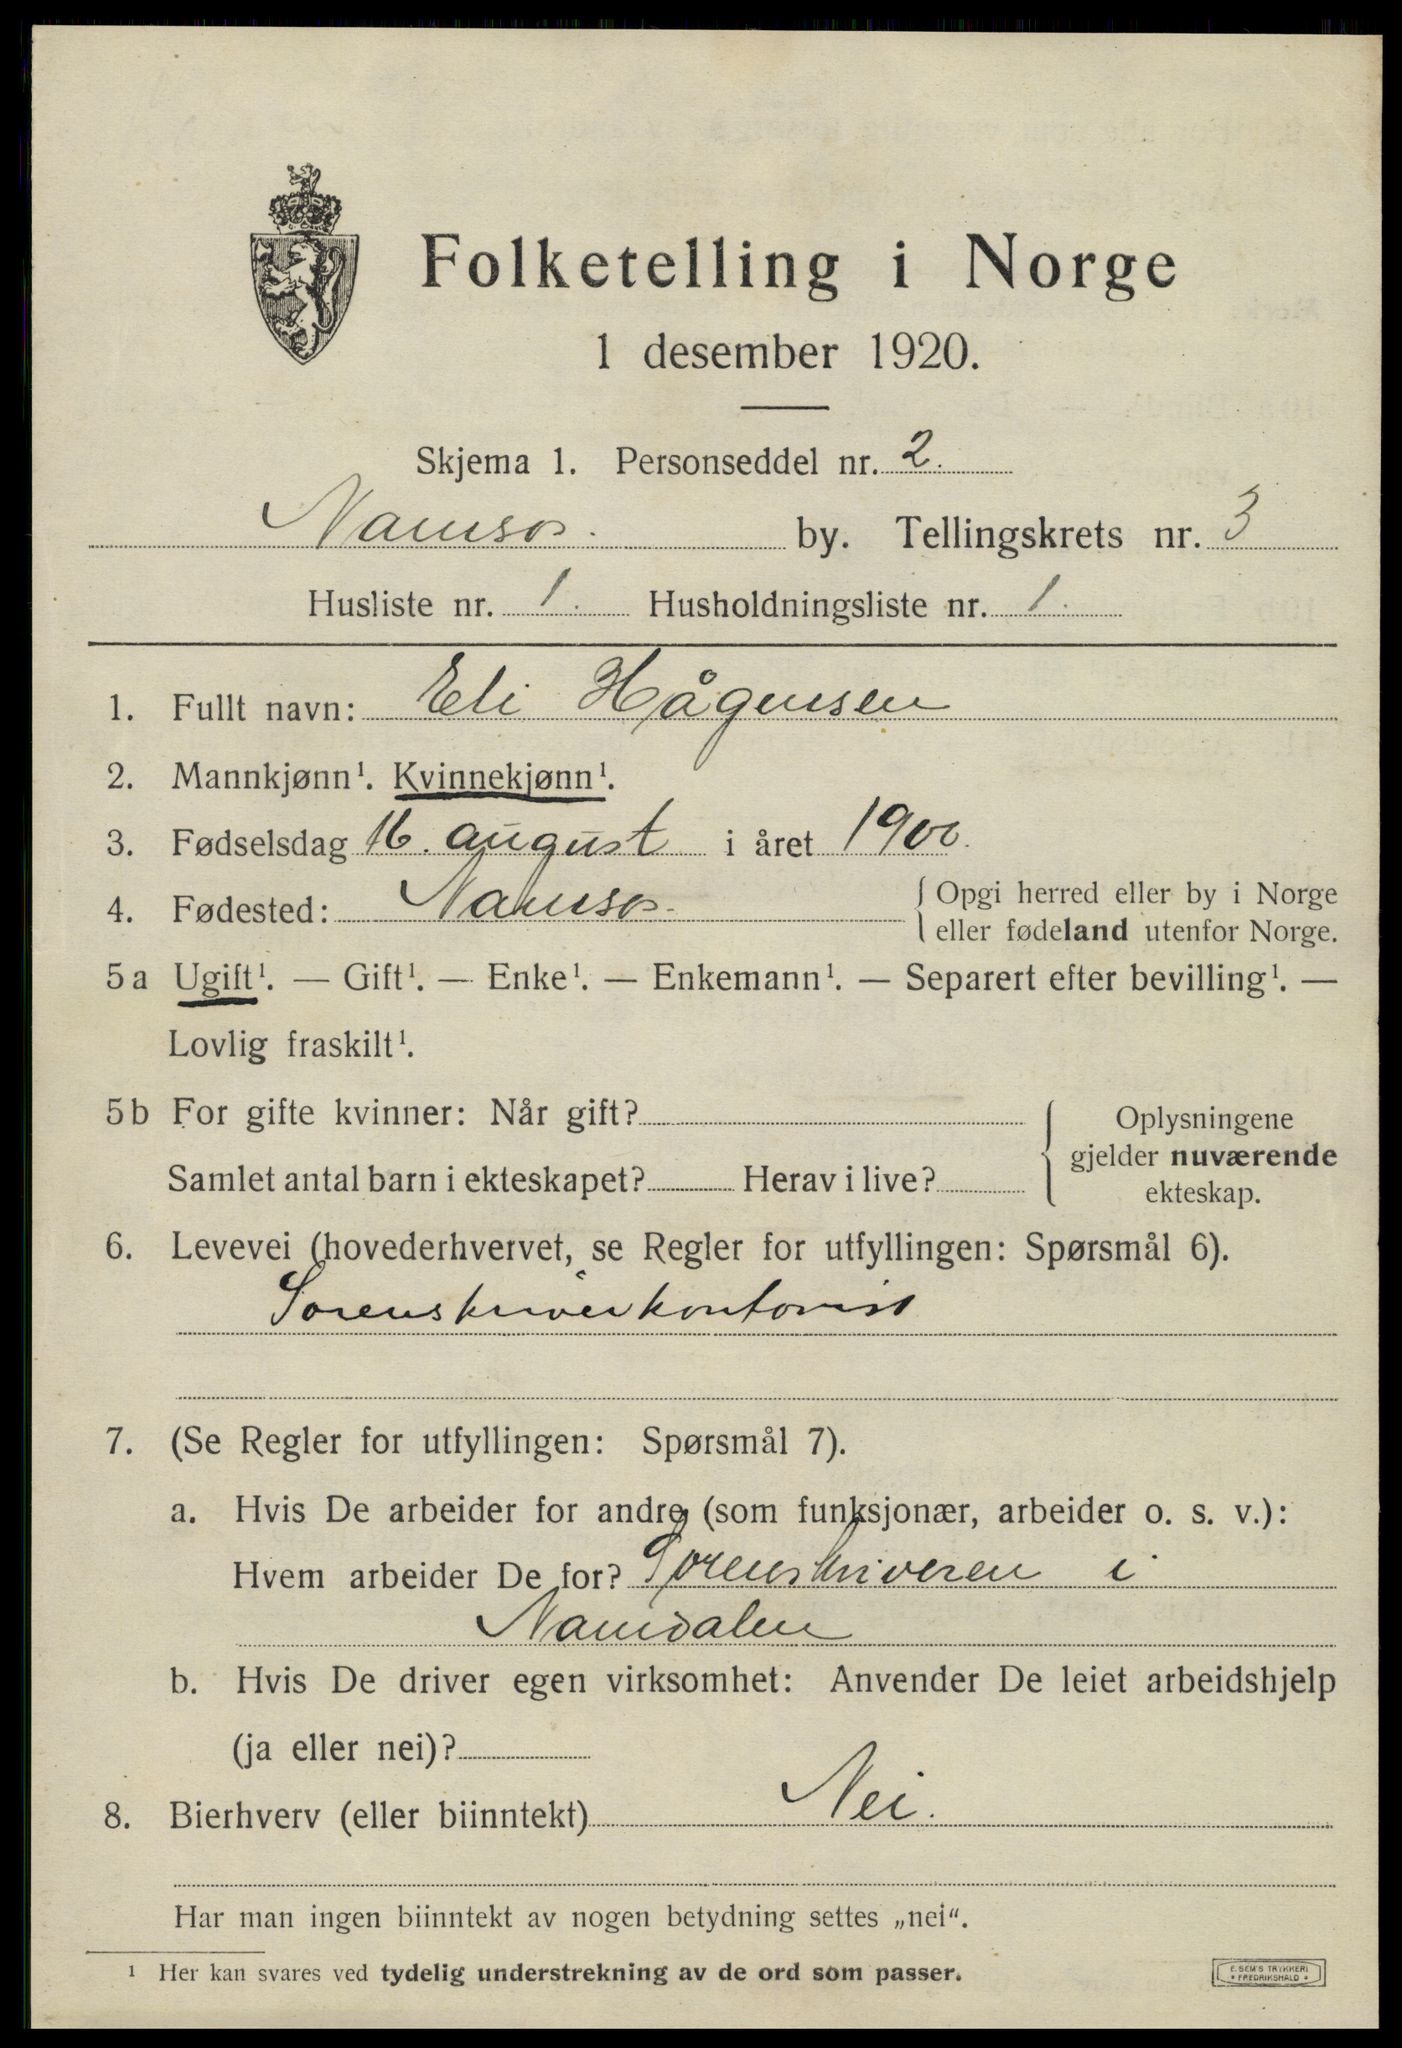 Folketelling i Norge
1 desember 1920.
Skjema 1. Personseddel nr. 2.
Namsos. by. Tellingskrets nr. 3
Husliste nr. 1. Husholdningsliste nr. 1.
1. Fullt navn: Eli Hågensen
2. Mannkjønn¹. Kvinnekjønn¹.
3. Fødselsdag 16. august i året 1900.
4. Fødested: Namsos. { Opgi herred eller by i Norge
eller fødeland utenfor Norge.
5a Ugift¹. — Gift¹. — Enke¹. — Enkemann¹. — Separert efter bevilling¹. —
Lovlig fraskilt¹.
5b For gifte kvinner: Når gift?
Samlet antal barn i ekteskapet? Herav i live?
{ Oplysningene
gjelder nuværende
ekteskap.
6. Levevei (hovederhvervet, se Regler for utfyllingen: Spørsmål 6).
Sorenskriverkontorist
7. (Se Regler for utfyllingen: Spørsmål 7).
a. Hvis De arbeider for andre (som funksjonær, arbeider o. s. v.):
Hvem arbeider De for? Sorenskriveren i
Namdalen
b. Hvis De driver egen virksomhet: Anvender De leiet arbeidshjelp
(ja eller nei)?
8. Bierhverv (eller biinntekt) Nei.
Har man ingen biinntekt av nogen betydning settes „nei“.
¹ Her kan svares ved tydelig understrekning av de ord som passer.
E. SEM'S TRYKKERI
• FREDRIKSHALD •